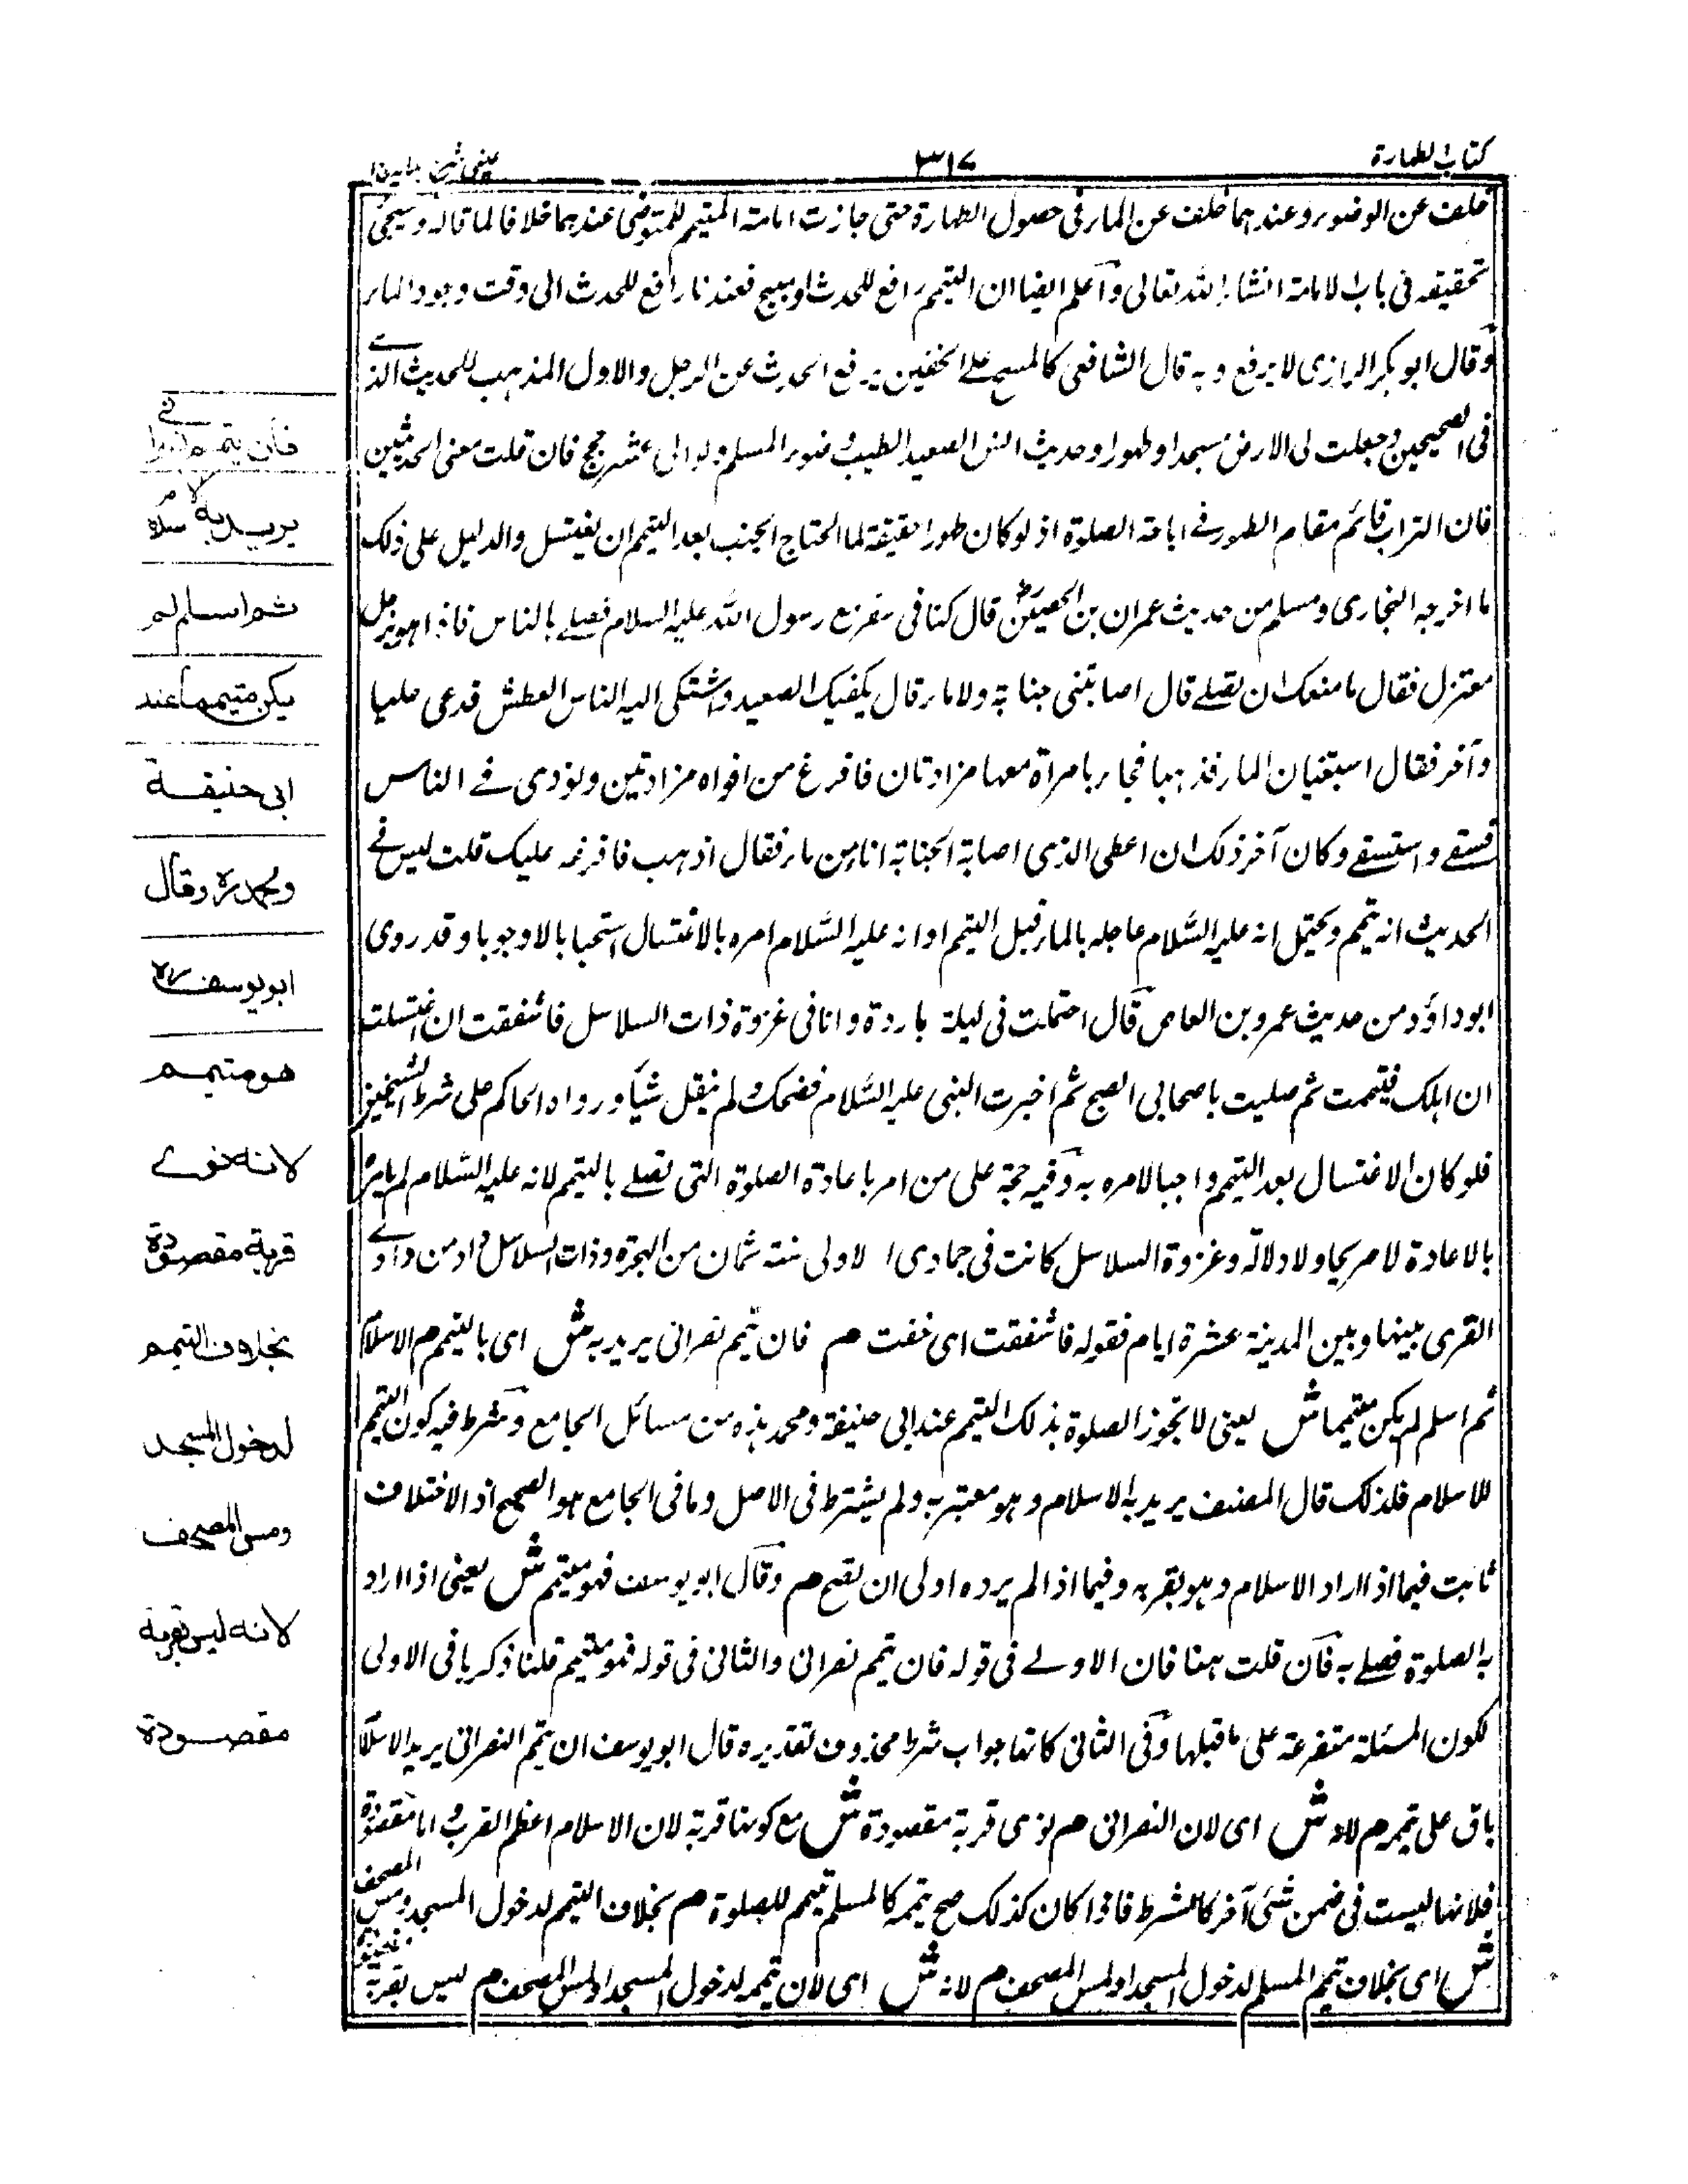 كتاب الطهارة
٣١٧
عينى شرح هداية ج١
خلف عن الوضوء وعندهما خلف عن الماء فى حصول الطهارة حتى جازت امامة المتيمم للمتوضى عندهما خلافا لما قاله وسيجئ
تحقيقه فى باب الامامة انشاء الله تعالى واعلم ايضا ان التيمم رافع للحدث او مبيح فعندنا رافع للحدث الى وقت وجود الماء
وقال ابو بكر الرازى لا يرفع وبه قال الشافعى كالمسح على الخفين يرفع الحدث عن الرجل والاول المذهب للحديث الذى
فى الصحيحين وجعلت لى الارض مسجدا وطهورا وحديث انس الصعيد الطيب وضوء المسلم ولو الى عشر حجج فان قلت معنى الحديثين
فان التراب قائم مقام الطهور فى اباحة الصلوة اذ لو كان طهورا حقيقة لما احتاج الجنب بعد التيمم ان يغتسل والدليل على ذلك
ما اخرجه البخارى ومسلم من حديث عمران بن الحصين رض قال كنا فى سفر مع رسول الله عليه السلام فصلى بالناس فاذا هو برجل
معتزل فقال ما منعك ان تصلى قال اصابتنى جنابة ولا ماء قال يكفيك الصعيد واشتكى اليه الناس العطش فدعى عليا
وآخر فقال استبغيان الماء فذهبا فجاء بامرأة معها مزادتان فافرغ من افواه مزادتين ونودى فى الناس
فسقى واستسقى وكان آخر ذلك ان اعطى الذى اصابة الجنابة اناء من ماء فقال اذهب فافرغه عليك قلت ليس فى
الحديث انه تيمم ويحتمل انه عليه السلام عاجله بالماء قبل التيمم او انه عليه السلام امره بالاغتسال استحبابا لا وجوبا وقد روى
ابو داؤد من حديث عمرو بن العاص قال احتلمت فى ليلة باردة وانا فى غزوة ذات السلاسل فاشفقت ان اغتسلت
ان اهلك فتيممت ثم صليت باصحابى الصبح ثم اخبرت النبى عليه السلام فضحك ولم يقل شيأ ورواه الحاكم على شرط الشيخين
فلو كان الاغتسال بعد التيمم واجبا لامره به وفيه حجة على من امر باعادة الصلوة التى تصلى بالتيمم لانه عليه السلام لم يامره
بالاعادة لا صريحا ولا دلالة وغزوة السلاسل كانت فى جمادى الاولى سنة ثمان من الهجرة وذات السلاسل واد من وادى
القرى بينها وبين المدينة عشرة ايام فقوله فاشفقت اى خفت م فان تيمم نصرانى يريد به ش اى بالتيمم م الاسلام
ثم اسلم لم يكن متيمما ش يعنى لا تجوز الصلوة بذلك التيمم عند ابى حنيفة ومحمد هذه من مسائل الجامع وشرط فيه كون التيمم
للاسلام فلذلك قال المصنف يريد به الاسلام وهو معتبر به ولم يشترط فى الاصل وما فى الجامع هو الصحيح اذ الاختلاف
ثابت فيما اذا اراد الاسلام وهو بقربة وفيما اذا لم يرده اولى ان يصح م وقال ابو يوسف فهو متيمم ش يعنى اذا اراد
به الصلوة فصلى به فان قلت هنا فان الاولى فى قوله فان تيمم نصرانى والثانى فى قوله فهو متيمم قلنا ذكر يا فى الاولى
لكون المسئلة متفرعة على ما قبلها وفى الثانى كانها جواب شرط محذوف تقديره قال ابو يوسف ان تيمم النصرانى يريد الاسلام
باق على تيممه م لانه ش اى لان النصرانى م نوى قربة مقصودة ش مع كونها قربة لان الاسلام اعظم القرب واما مقصودة
فلانها ليست فى ضمن شئ آخر كالشرط فاذا كان كذلك صح تيممه كالمسلم تيمم للصلوة م بخلاف التيمم لدخول المسجد ومس المصحف
ش اى بخلاف تيمم المسلم لدخول المسجد او لمس المصحف م لانه ش اى لان تيممه لدخول المسجد او لمس المصحف م ليس بقربة
فان تيمم نصرانى
يريد به الاسلام
ثم اسلم لم
يكن متيمما عند
ابى حنيفة
ومحمد رح وقال
ابو يوسف رح
هو متيمم
لانه نوى
قربة مقصودة
بخلاف التيمم
لدخول المسجد
ومس المصحف
لانه ليس بقربة
مقصودة